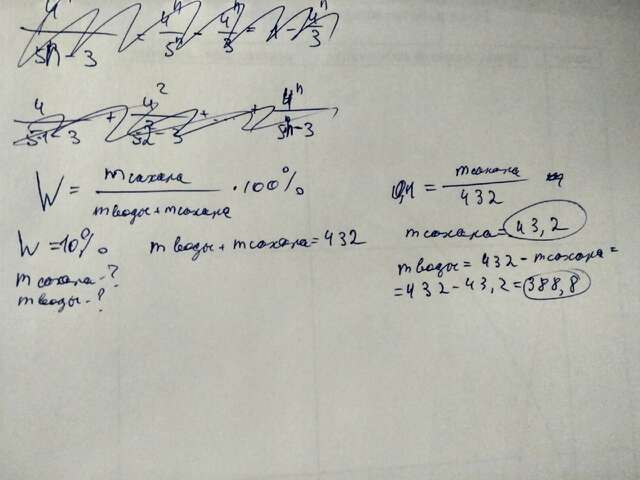 4ⁿ / 5ⁿ - 3 = 4ⁿ / 5ⁿ - 4ⁿ / 3 = - 4ⁿ / 3
4 / 51 - 3 + 4² / 52 - 3 + ... + 4ⁿ / 5ⁿ - 3
W = m сахара / m воды + m сахара · 100%
W = 10% m воды + m сахара = 432
m сахара - ?
m воды - ?
0,1 = m сахара / 432
m сахара = 43,2
m воды = 432 - m сахара =
= 432 - 43,2 = 388,8